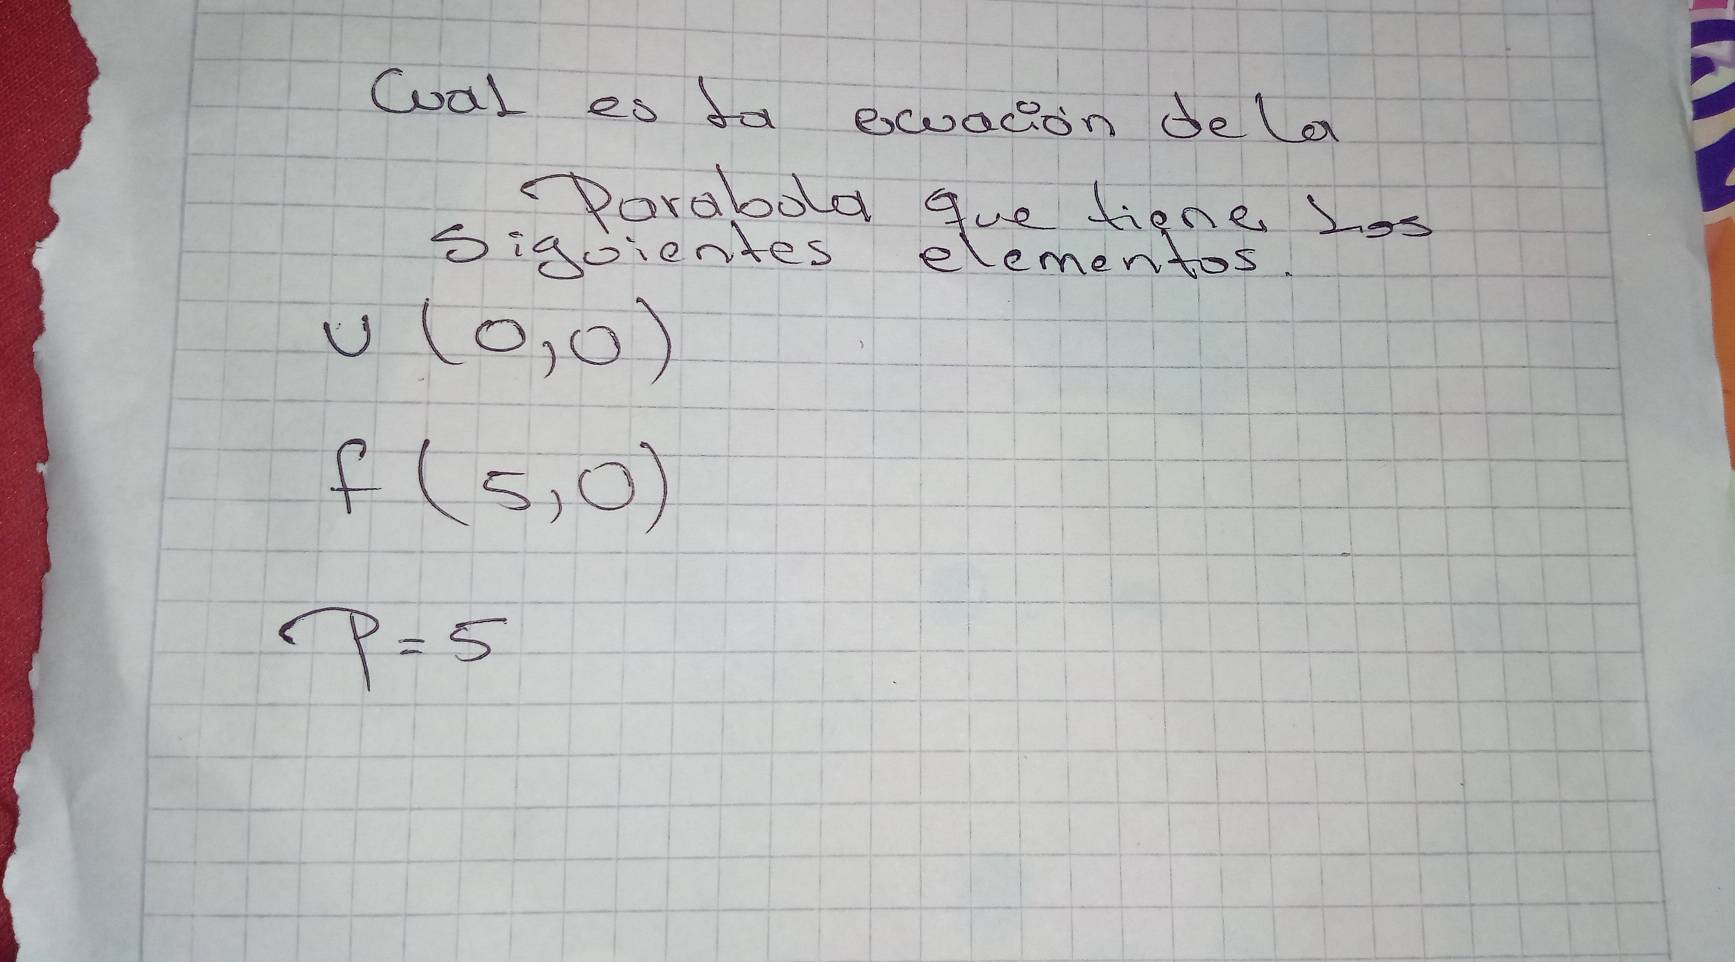 Cual es la ecuación de la
Parabola que tiene Los
siguientes elementos.
v (0,0)
f (5,0)
P = 5